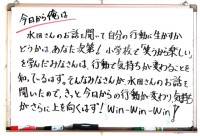 今日から俺は
水田さんのお話を聞いて自分の行動に生かすか
どうかは、あなた次第！小学校で「笑うから楽しい」
を学んだみなさんは、行動で気持ちが変わることを
知っているはず。そんなみなさんが、水田さんのお話を
聞いたので、きっと今日からの行動が変わり、気持ち
がさらに上を向くはず！Win-Win-Win！